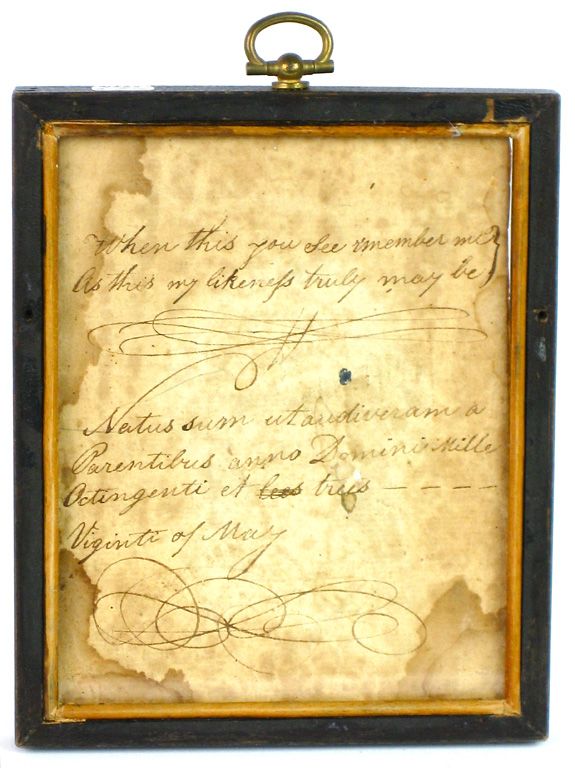 When this you see rmember me
As this my likeness truly may be
Natus sum ut audiveram a
Parentibus anno Domini Mille
Octingenti et trees - - - -
Viginti of May